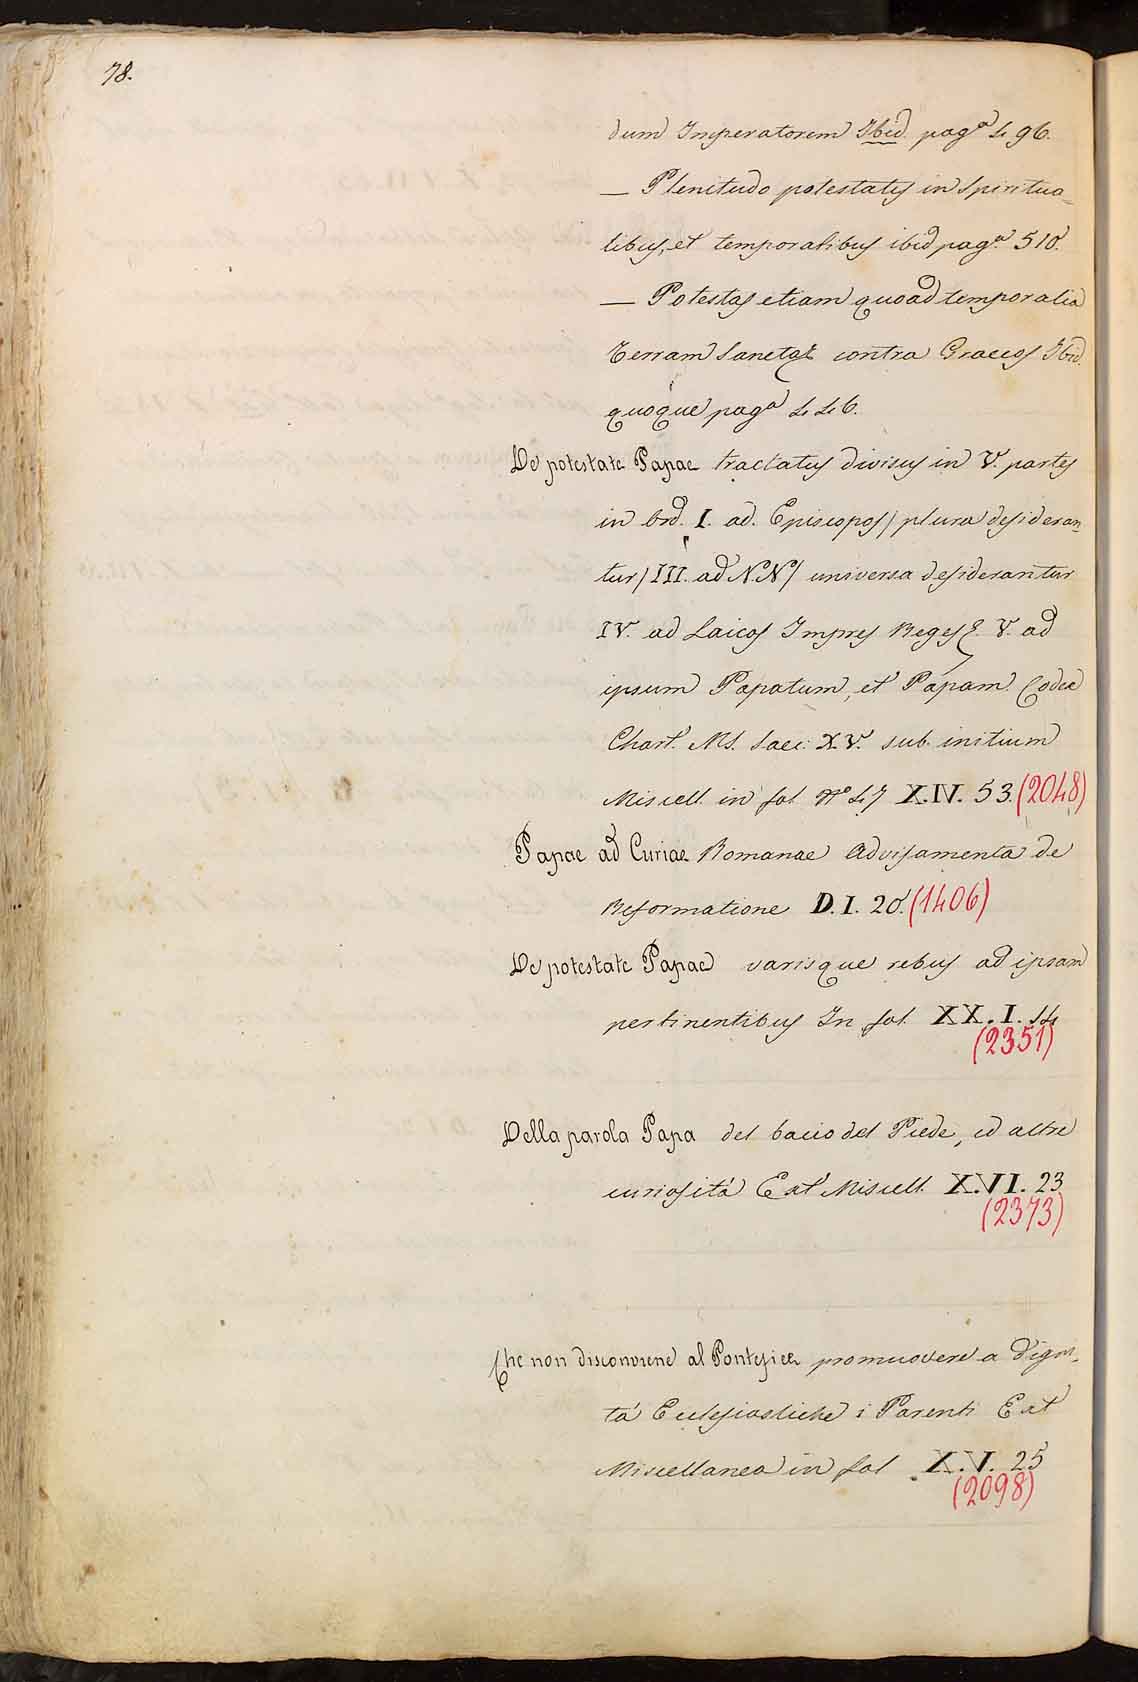 78.
dum Imperatorem Ibid. pagª 496.
— Plenitudo potestatis in Spiritua=
libus, et temporalibus ibid pag.ª 510.
— Potestas etiam quoad temporalia
Terram Sanctam contra Graecos Ibid.
quoque pagª 446.
De potestate Papae tractatus divisus in V. partes
in I. ad. Episcopos / plura desideran=
tur / III. ad N.N. / universa desiderantur
IV. ad Laicos Impres Reges &. V. ad
ipsum Papatum, et Papam. Codex
Chart. MS. Saec: XV. sub initium
Miscell. in fol. Nº 47 X.IV. 53. (2048)
Papae ad Curiae Romanae Advisamenta de
Reformatione D.I. 20. (1406)
De potestate Papae varisque rebus ad ipsam
pertinentibus In fol. XX. I. 14
(2351)
Della parola Papa del bacio del Piede, ed altre
curiosità Ext Miscell. X.VI. 23
(2373)
Che non disconviene al Pontefice promuovere a Digni=
tà Ecclesiastiche i Parenti Ext
Miscellanea in fol X.V. 25
(2098)